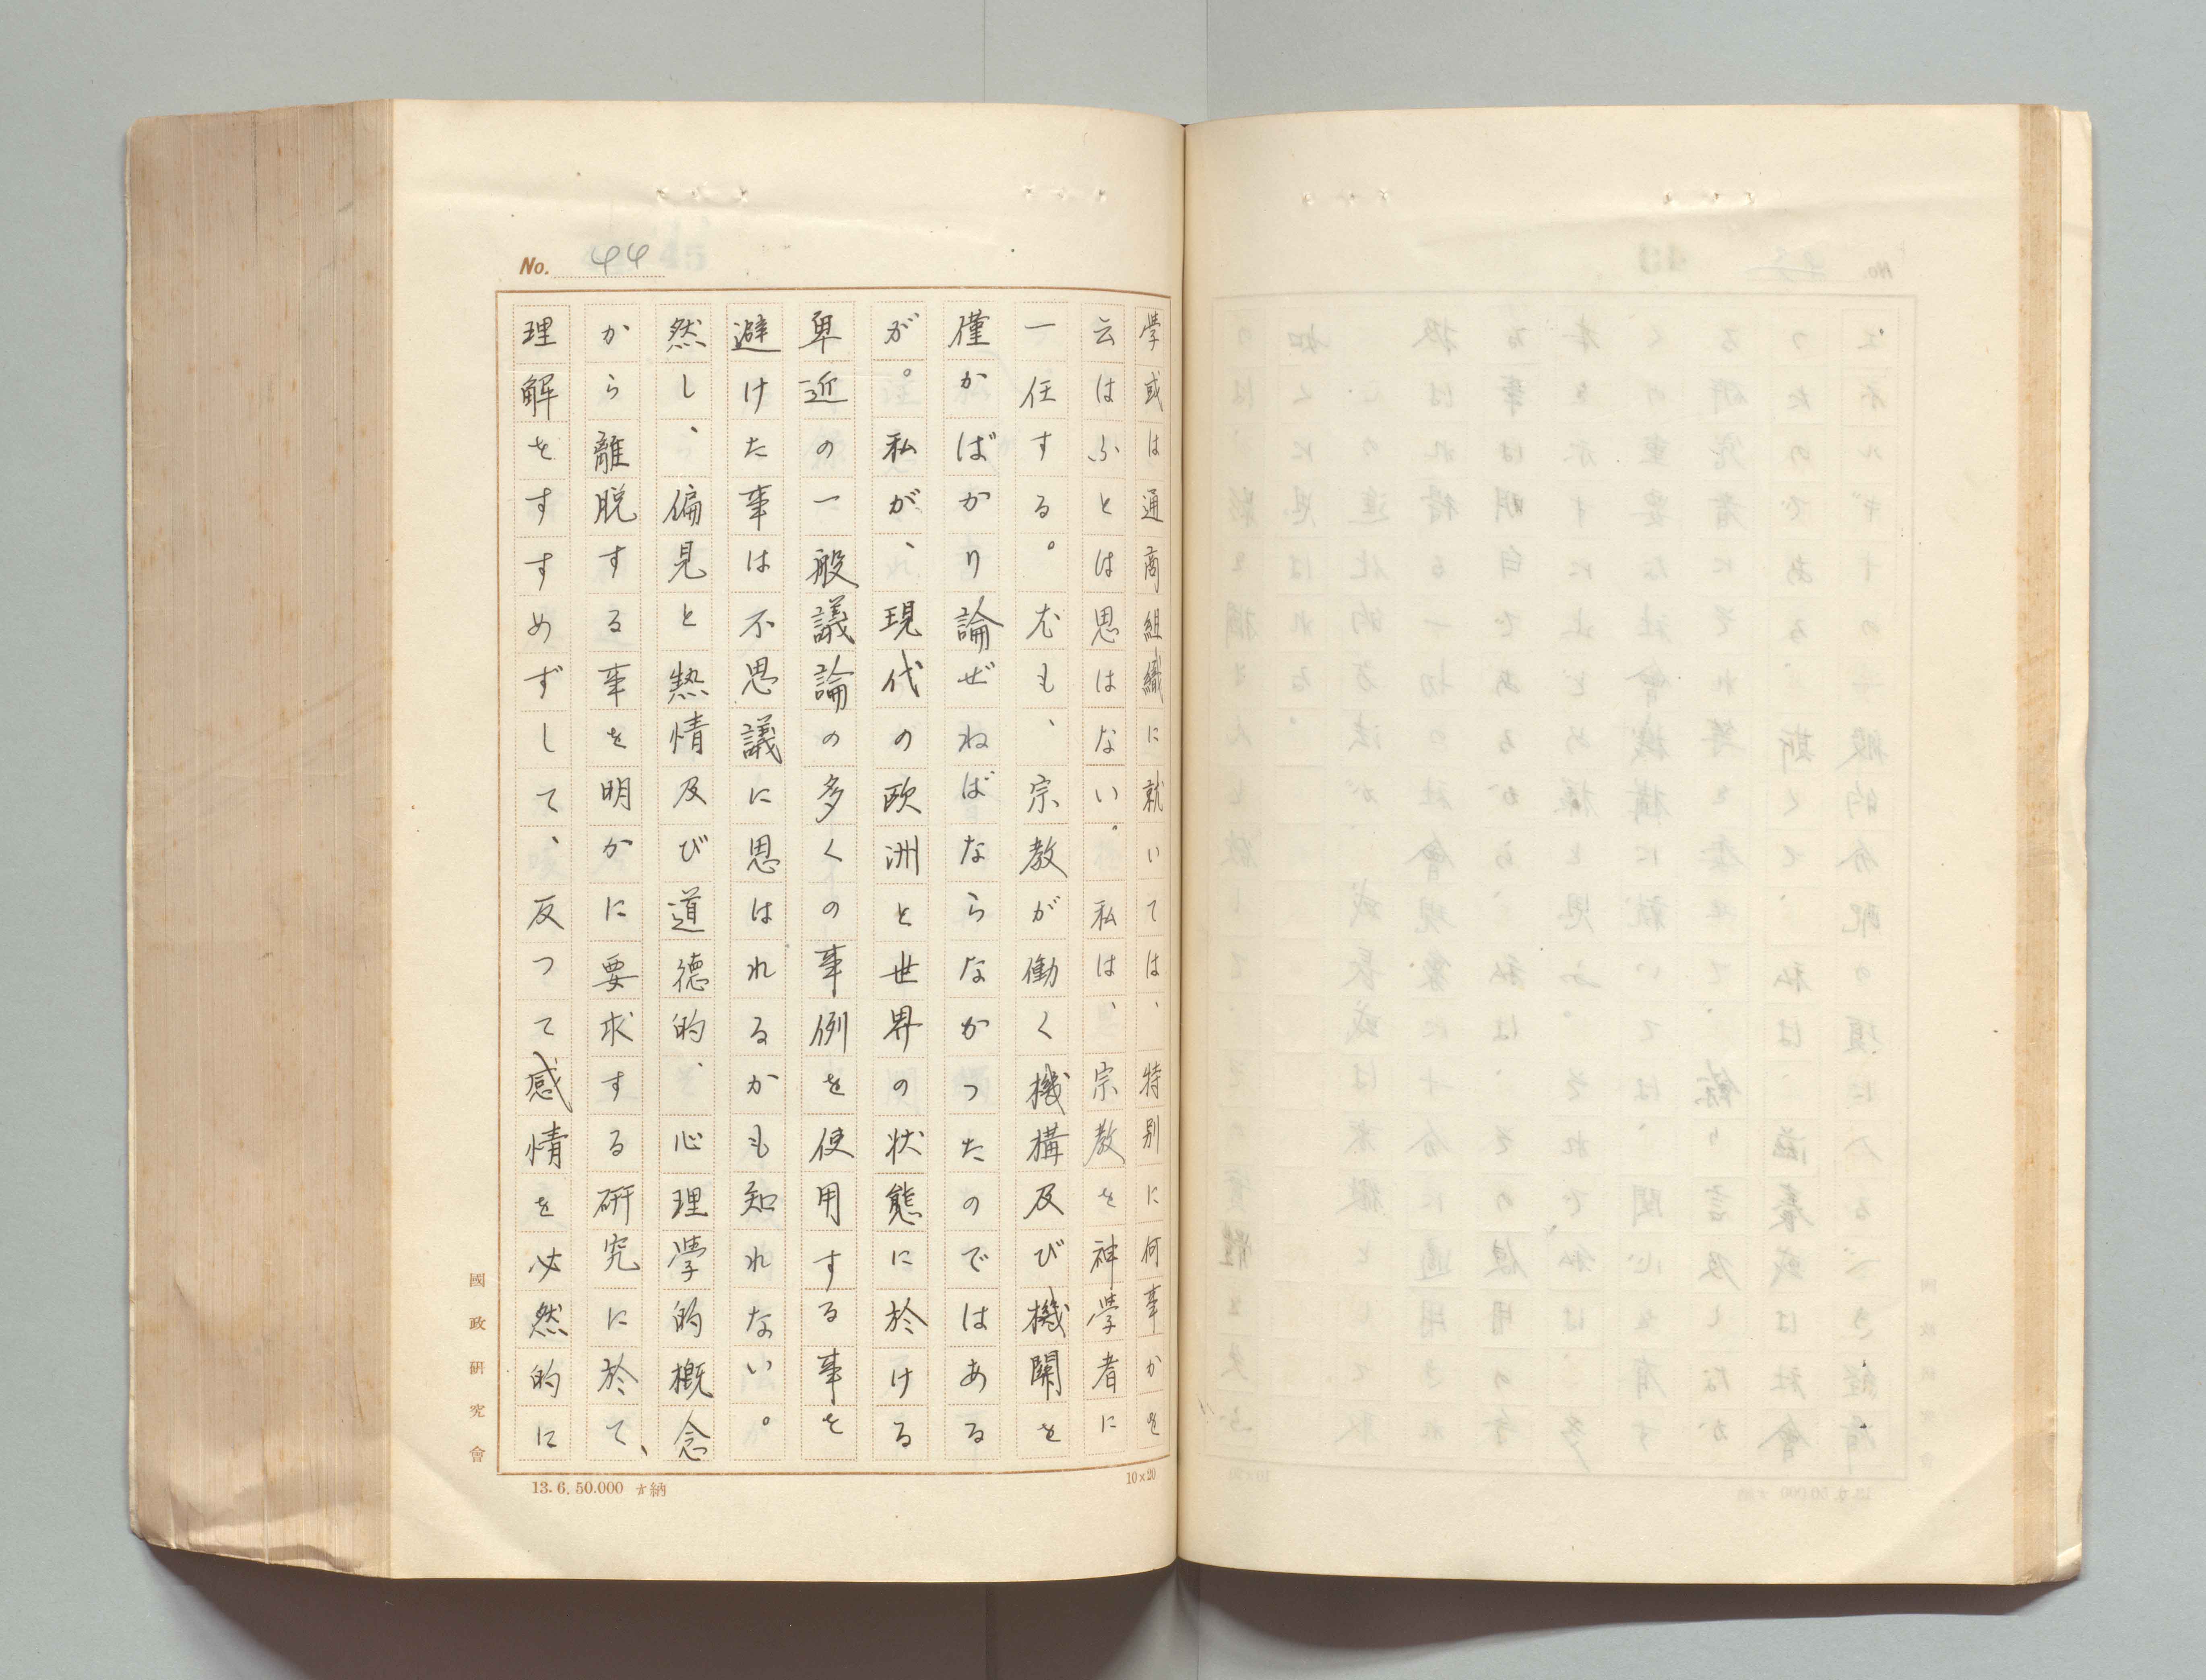 No. 44
學或は通商組織に就いては、特別に何事かを
云はふとは思はない。私は、宗教を神學者に
一任する。尤も、宗教が働く機構及び機關を
僅かばかり論ぜねばならなかつたのではある
が。私が、現代の欧洲と世界の状態に於ける
卑近の一般議論の多くの事例を使用する事を
避けた事は不思議に思はれるかも知れない。
然し、偏見と熱情及び道德的、心理學的概念
から離脱する事を明かに要求する研究に於て、
理解をすすめずして、反つて感情を必然的に
國政研究會
13.6.50.000 納
10×20